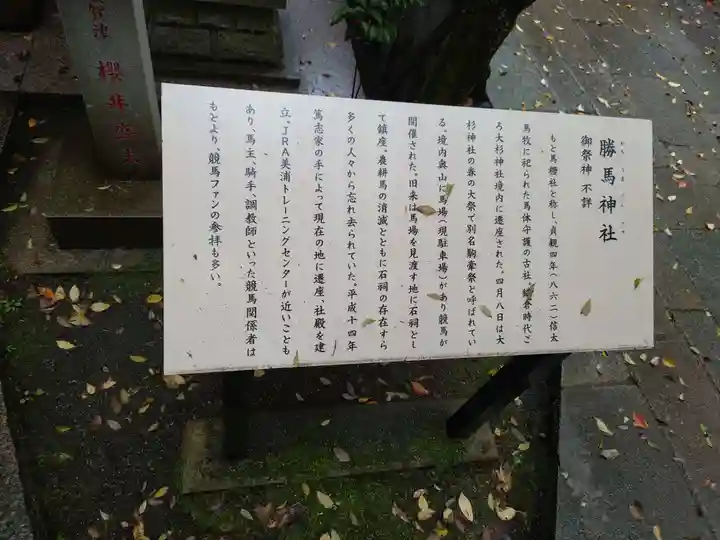 勝馬神社
かちうまじんじゃ
御祭神 不詳
もと馬櫪社と称し、貞観四年(八六二)信太
馬牧に祀られた馬体守護の古社。鎌倉時代ご
ろ大杉神社境内に遷座された。四月八日は大
杉神社の春の大祭で別名駒牽祭と呼ばれてい
る。境内奥山に馬場(現駐車場)があり競馬が
開催された。旧来は馬場を見渡す地に石祠とし
て鎮座。農耕馬の消滅とともに石祠の存在すら
多くの人々から忘れ去られていた。平成十四年
篤志家の手によって現在の地に遷座、社殿を建
立。JRA美浦トレーニングセンターが近いことも
あり、馬主、騎手、調教師といった競馬関係者は
もとより、競馬ファンの参拝も多い。